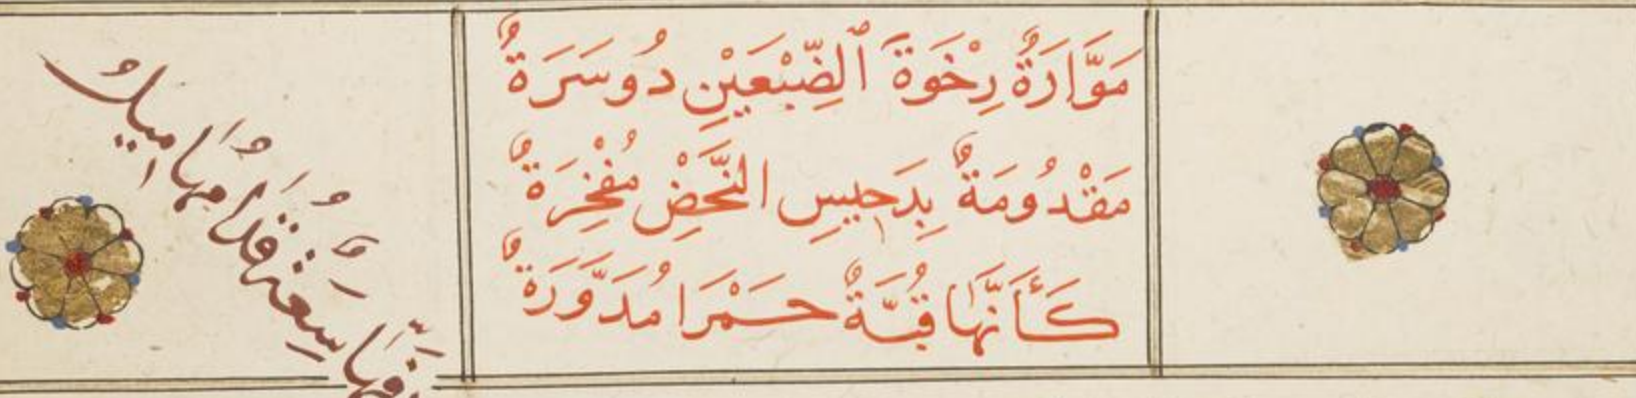 مَوَّارَةٌ رِخْوَةَ ٱلضَّبْعَيْنِ دُوسَرَةٌ
مَقْدُومَةٌ بِدَحِيسِ النَّحَضْ مُفْخِرَةٌ
كَأَنَّهَا قُبَّةٌ حَمْرَا مُدَوَّرَةٌ
سِعَةٌ قُدَّامُهَا مِيلُ